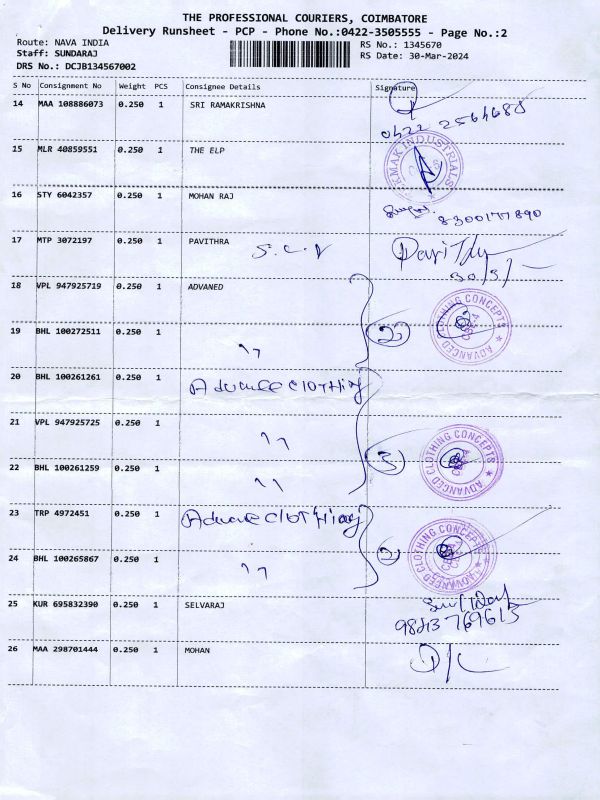 THE PROFESSIONAL COURIERS, COIMBATORE
Delivery Runsheet - PCP - Phone No.:0422-3505555 - Page No.:2
Route: NAVA INDIA RS No.: 1345670
Staff: SUNDARAJ RS Date: 30-Mar-2024
DRS No.: DCJB134567002
S No Consignment No Weight PCS Consignee Details Signature
14 MAA 108886073 0.250 1 SRI RAMAKRISHNA
0422 2564688
15 MLR 40859551 0.250 1 THE ELP
INDUSTRIALS
16 STY 6042357 0.250 1 MOHAN RAJ
8300177890
17 MTP 3072197 0.250 1 PAVITHRA
18 VPL 947925719 0.250 1 ADVANED
ADVANCED CLOTHING CONCEPTS
19 BHL 100272511 0.250 1
" 2
20 BHL 100261261 0.250 1
Advance Clothing
21 VPL 947925725 0.250 1
" ADVANCED CLOTHING CONCEPTS
22 BHL 100261259 0.250 1 3
"
23 TRP 4972451 0.250 1
Advance Clothing ADVANCED CLOTHING CONCEPTS
24 BHL 100265867 0.250 1 2
"
25 KUR 695832390 0.250 1 SELVARAJ
9843769615
26 MAA 298701444 0.250 1 MOHAN